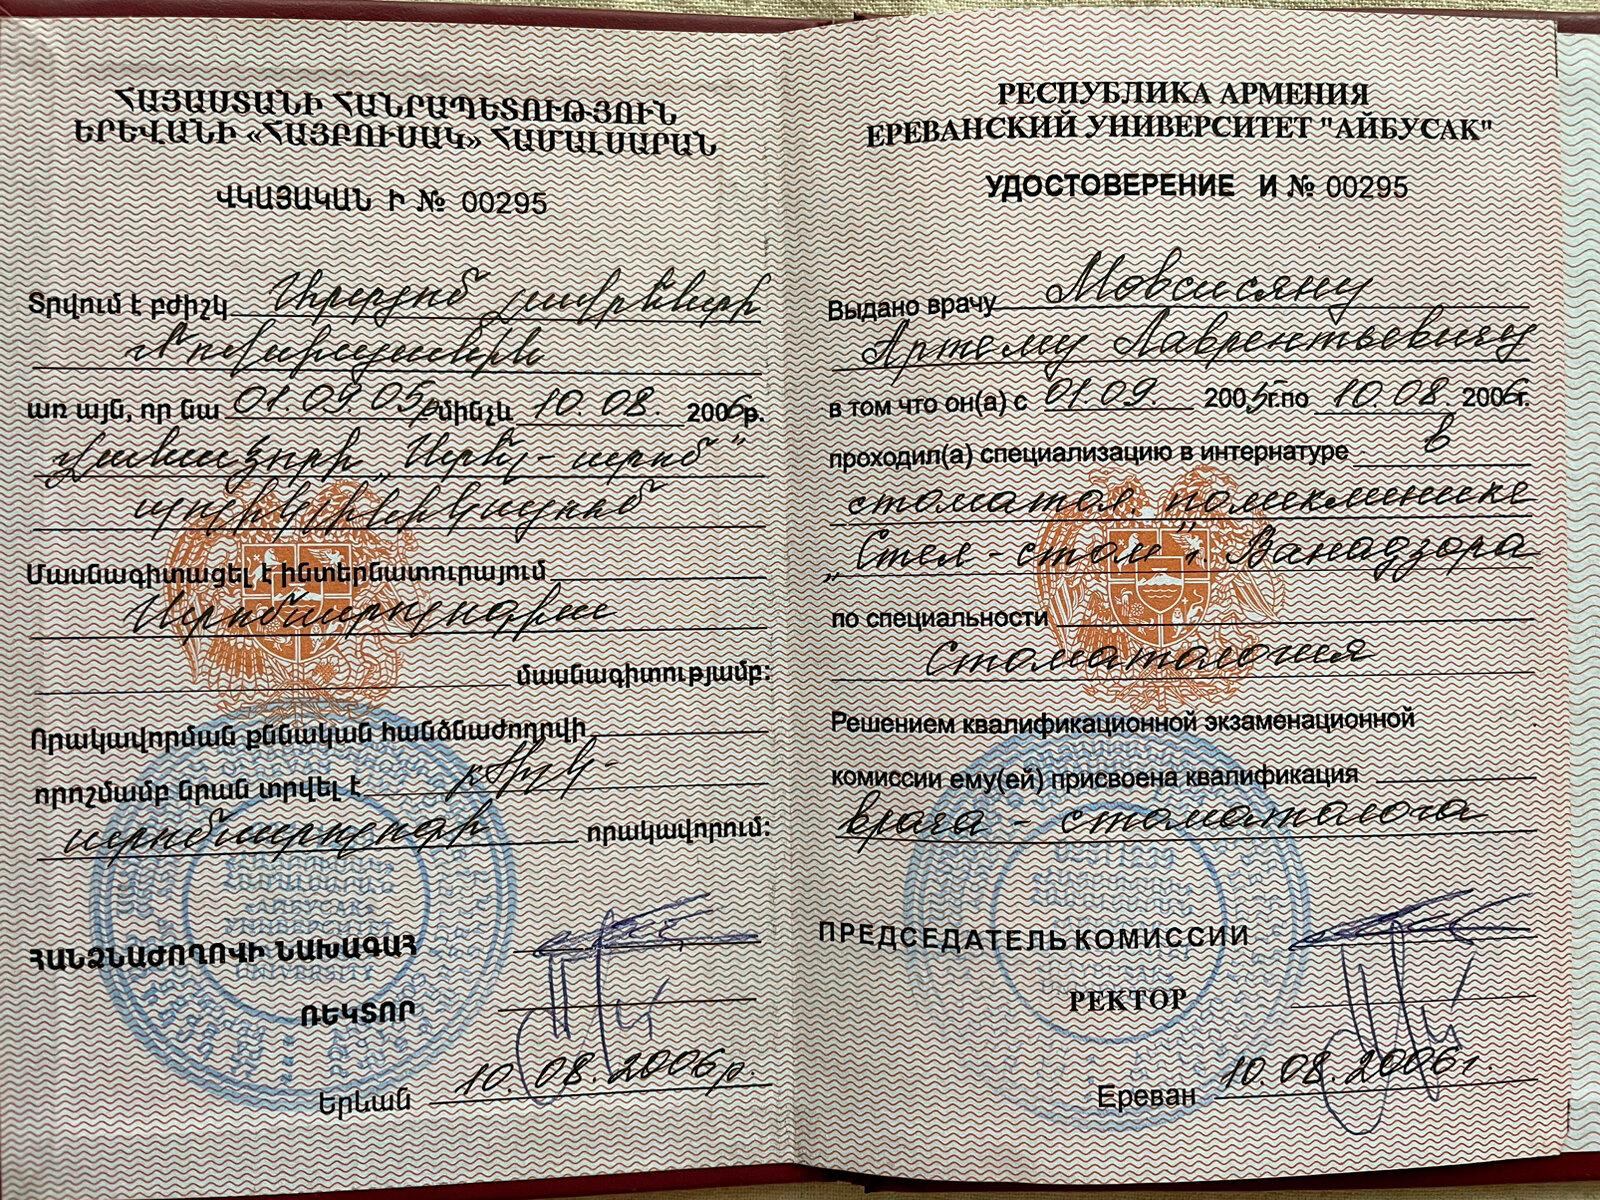 ՀԱՅԱՍՏԱՆԻ ՀԱՆՐԱՊԵՏՈՒԹՅՈՒՆ
ԵՐԵՎԱՆԻ «ՀԱՅԲՈՒՍԱԿ» ՀԱՄԱԼՍԱՐԱՆ
ՎԿԱՅԱԿԱՆ Ի № 00295
Տրվում է բժիշկ
Մովսիսյանին
առ այն, որ նա 01.09.05թ մինչև 10.08. 2006թ.
Վանաձորի
պոլիկլինիկայում
Մասնագիտացել է ինտերնատուրայում
Ստոմատոլոգիա
մասնագիտությամբ:
Որակավորման քննական հանձնաժողովի
որոշմամբ նրան տրվել է բժիշկ-
ստոմատոլոգի որակավորում:
ՀԱՆՁՆԱԺՈՂՈՎԻ ՆԱԽԱԳԱՀ
ՌԵԿՏՈՐ
Երևան 10.08.2006թ.
РЕСПУБЛИКА АРМЕНИЯ
ЕРЕВАНСКИЙ УНИВЕРСИТЕТ "АЙБУСАК"
УДОСТОВЕРЕНИЕ И № 00295
Выдано врачу Мовсисяну
Артему Лаврентьевичу
в том что он(а) с 01.09. 2005г.по 10.08. 2006г.
проходил(а) специализацию в интернатуре в
стоматол. поликлинике
„Стел-стом" г. Ванадзора
по специальности
Стоматология
Решением квалификационной экзаменационной
комиссии ему(ей) присвоена квалификация
врача-стоматолога
ПРЕДСЕДАТЕЛЬ КОМИССИИ
РЕКТОР
Ереван 10.08.2006г.